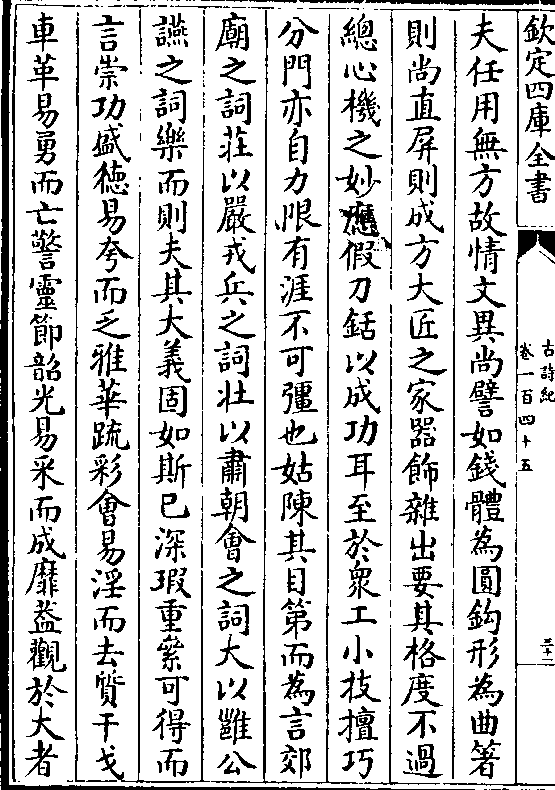 欽定四庫全書
古詩紀
卷一百四十五
三十二
夫任用無方故情文異尚譬如錢體為圓鈎形為曲箸
則尚直屏則成方大匠之家器飾雜出要其格度不過
總心機之妙應假刀鋸以成功耳至於衆工小技擅巧
分門亦自力限有涯不可彊也姑陳其目第而為言郊
廟之詞莊以嚴戎兵之詞壯以肅朝會之詞大以雝公
讌之詞樂而則夫其大義固如斯已深瑕重纇可得而
言崇功盛德易夸而乏雅華疏彩會易淫而去質干戈
車革易勇而亡警靈節韶光易采而成靡蓋觀於大者